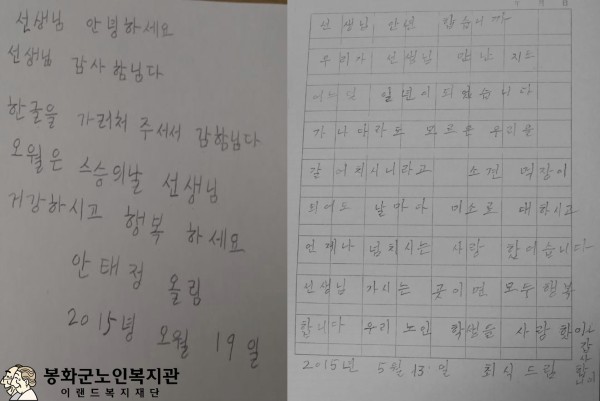 선생님 안녕하세요
선생님 감사 함님다
한글을 가러처 주서서 감함님다
오월은 스승의날 선생님
거강하시고 행복 하세요
안태점 올림
2015녕 오월 19일
봉화군노인복지관
이랜드복지재단
선생님 안년 입습니까
우리가 선생님 만난 지도
일년이 되었습니다
가나다라도 모르는 우리를
갈어치시니라고 소견 먹장이
되어도 날마다 미소로 대하시고
언제나 넘치시는 사랑
선생님 가시는 곳이면 모두 행복
합니다 우리 노인 학생을 사랑
2015년 5월 13일 최식 드림